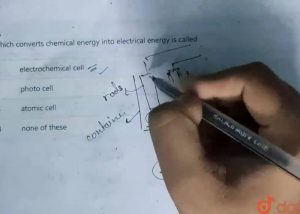 hich converts chemical energy into electrical energy is called
electrochemical cell
photo cell
rods
atomic cell
container
none of these